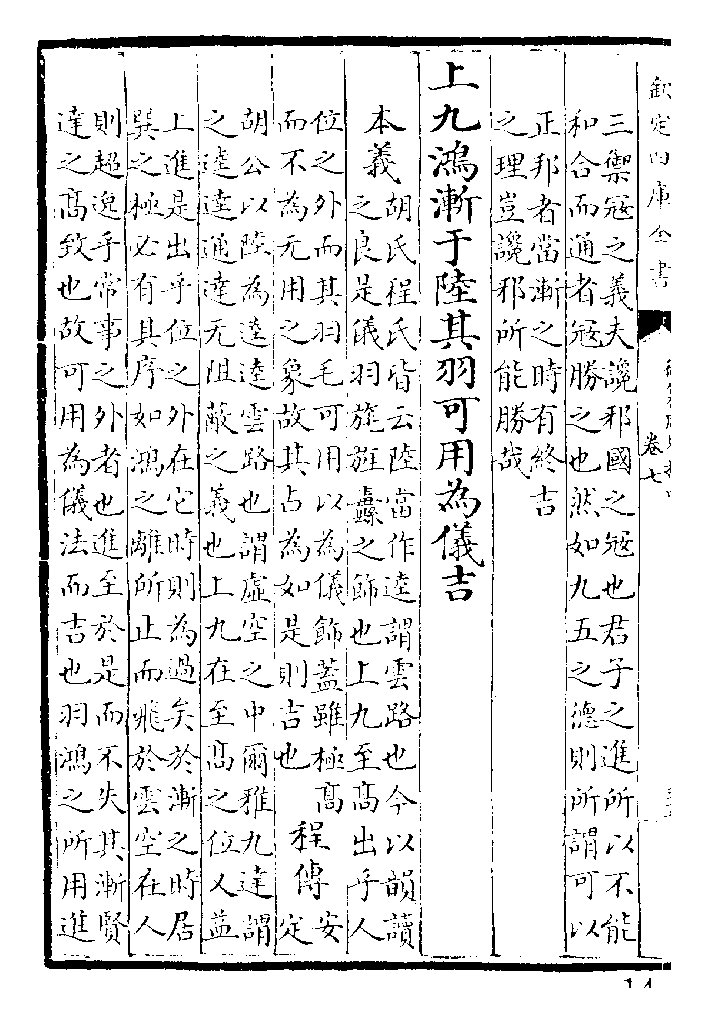 欽定四庫全書
卷七
三禦冦之義夫讒邪國之冦也君子之進所以不能
和合而通者冦勝之也然如九五之德則所謂可以
正邦者當漸之時有終吉
之理豈讒邪所能勝哉
上九鴻漸于陸其羽可用為儀吉
本義
胡氏程氏皆云陸當作逵謂雲路也今以韻讀
之良是儀羽旄旌纛之飾也上九至髙出乎人
位之外而其羽毛可用以為儀飾葢雖極髙
而不為无用之象故其占為如是則吉也
程傳
安
定
胡公以陸為逵逵雲路也謂虛空之中爾雅九達謂
之逵逵通達无阻蔽之義也上九在至髙之位又益
上進是出乎位之外在它時則為過矣於漸之時居
巽之極必有其序如鴻之離所止而飛於雲空在人
則超逸乎常事之外者也進至於是而不失其漸賢
達之髙致也故可用為儀法而吉也羽鴻之所用進